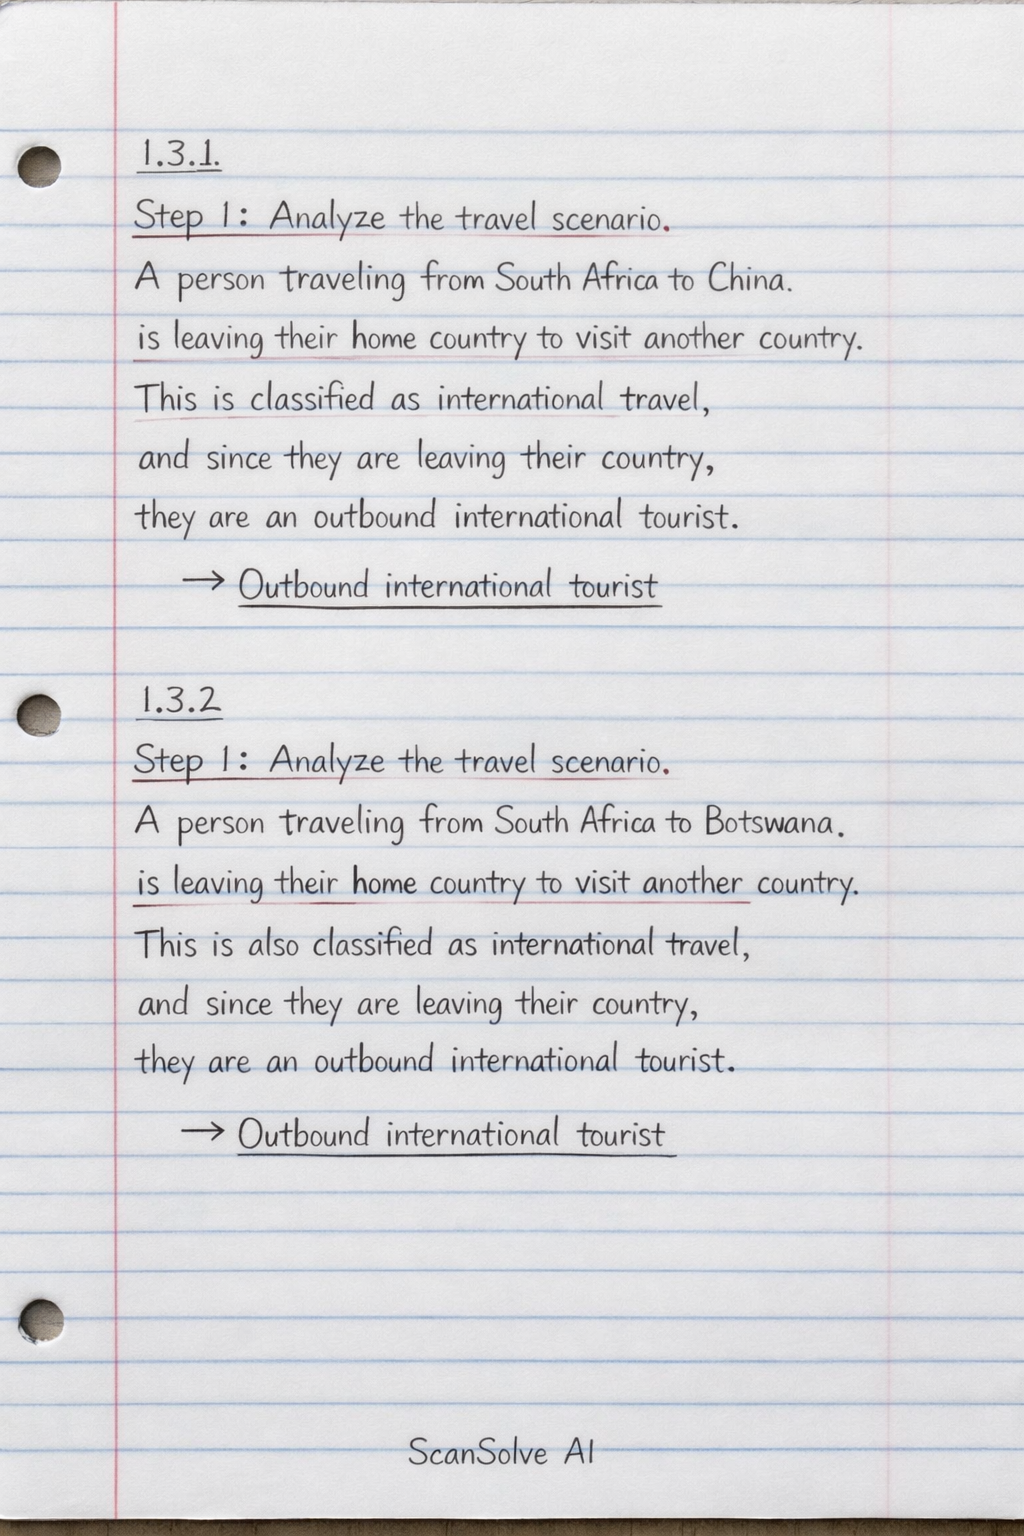 1.3.1.
Step 1: Analyze the travel scenario.
A person traveling from South Africa to China.
is leaving their home country to visit another country.
This is classified as international travel,
and since they are leaving their country,
they are an outbound international tourist.
→ Outbound international tourist
1.3.2
Step 1: Analyze the travel scenario.
A person traveling from South Africa to Botswana.
is leaving their home country to visit another country.
This is also classified as international travel,
and since they are leaving their country,
they are an outbound international tourist.
→ Outbound international tourist
ScanSolve AI